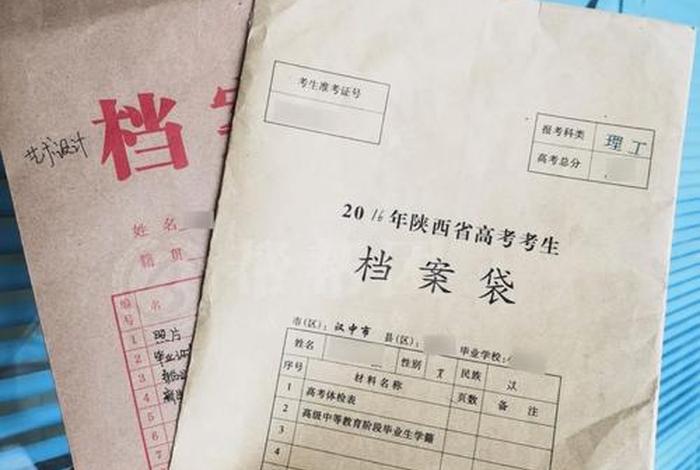 艺术设计
档
姓名
籍贯
编号 名
1 照片
2 毕业
3
4
5
6
7
考生准考证号
报考科类 理工
高考总分
2016年陕西省高考考生
档案袋
市(区): 汉中市 县(区): 毕业学校:
姓名 性别 民族 汉
序号 材料名称 页数 备注
1 高考体检表
2 高级中等教育阶段毕业生学籍
3
4